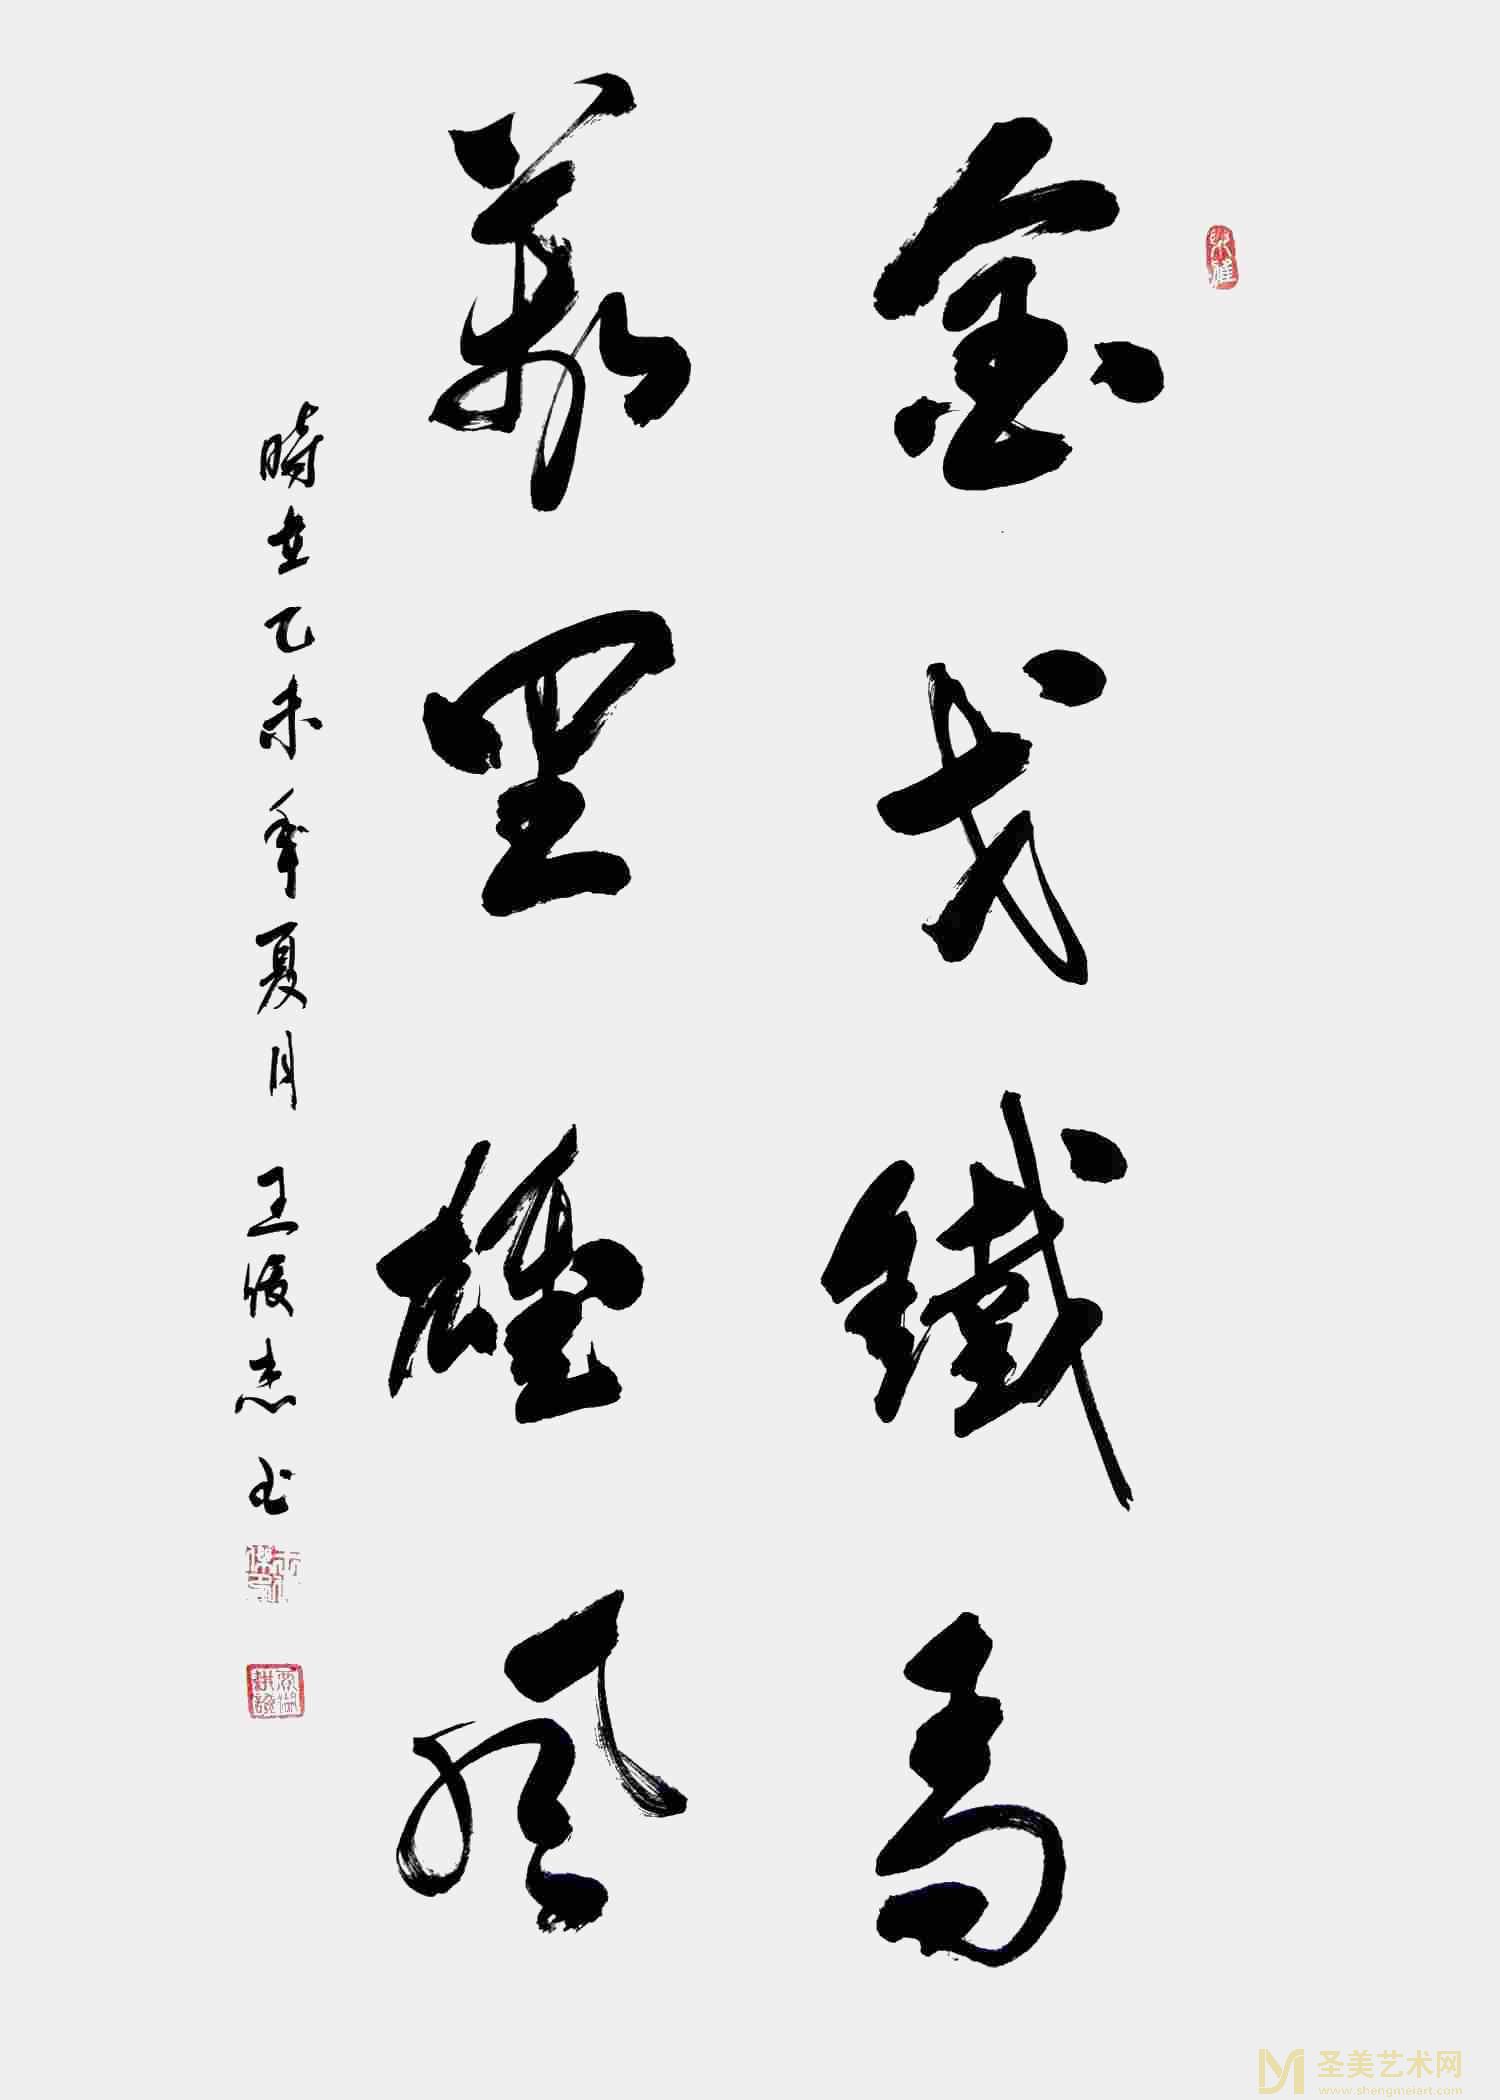 金戈鐵馬
萬里雄風
時在乙未年夏月 王俊杰书
圣美艺术网
www.shengmeiart.com